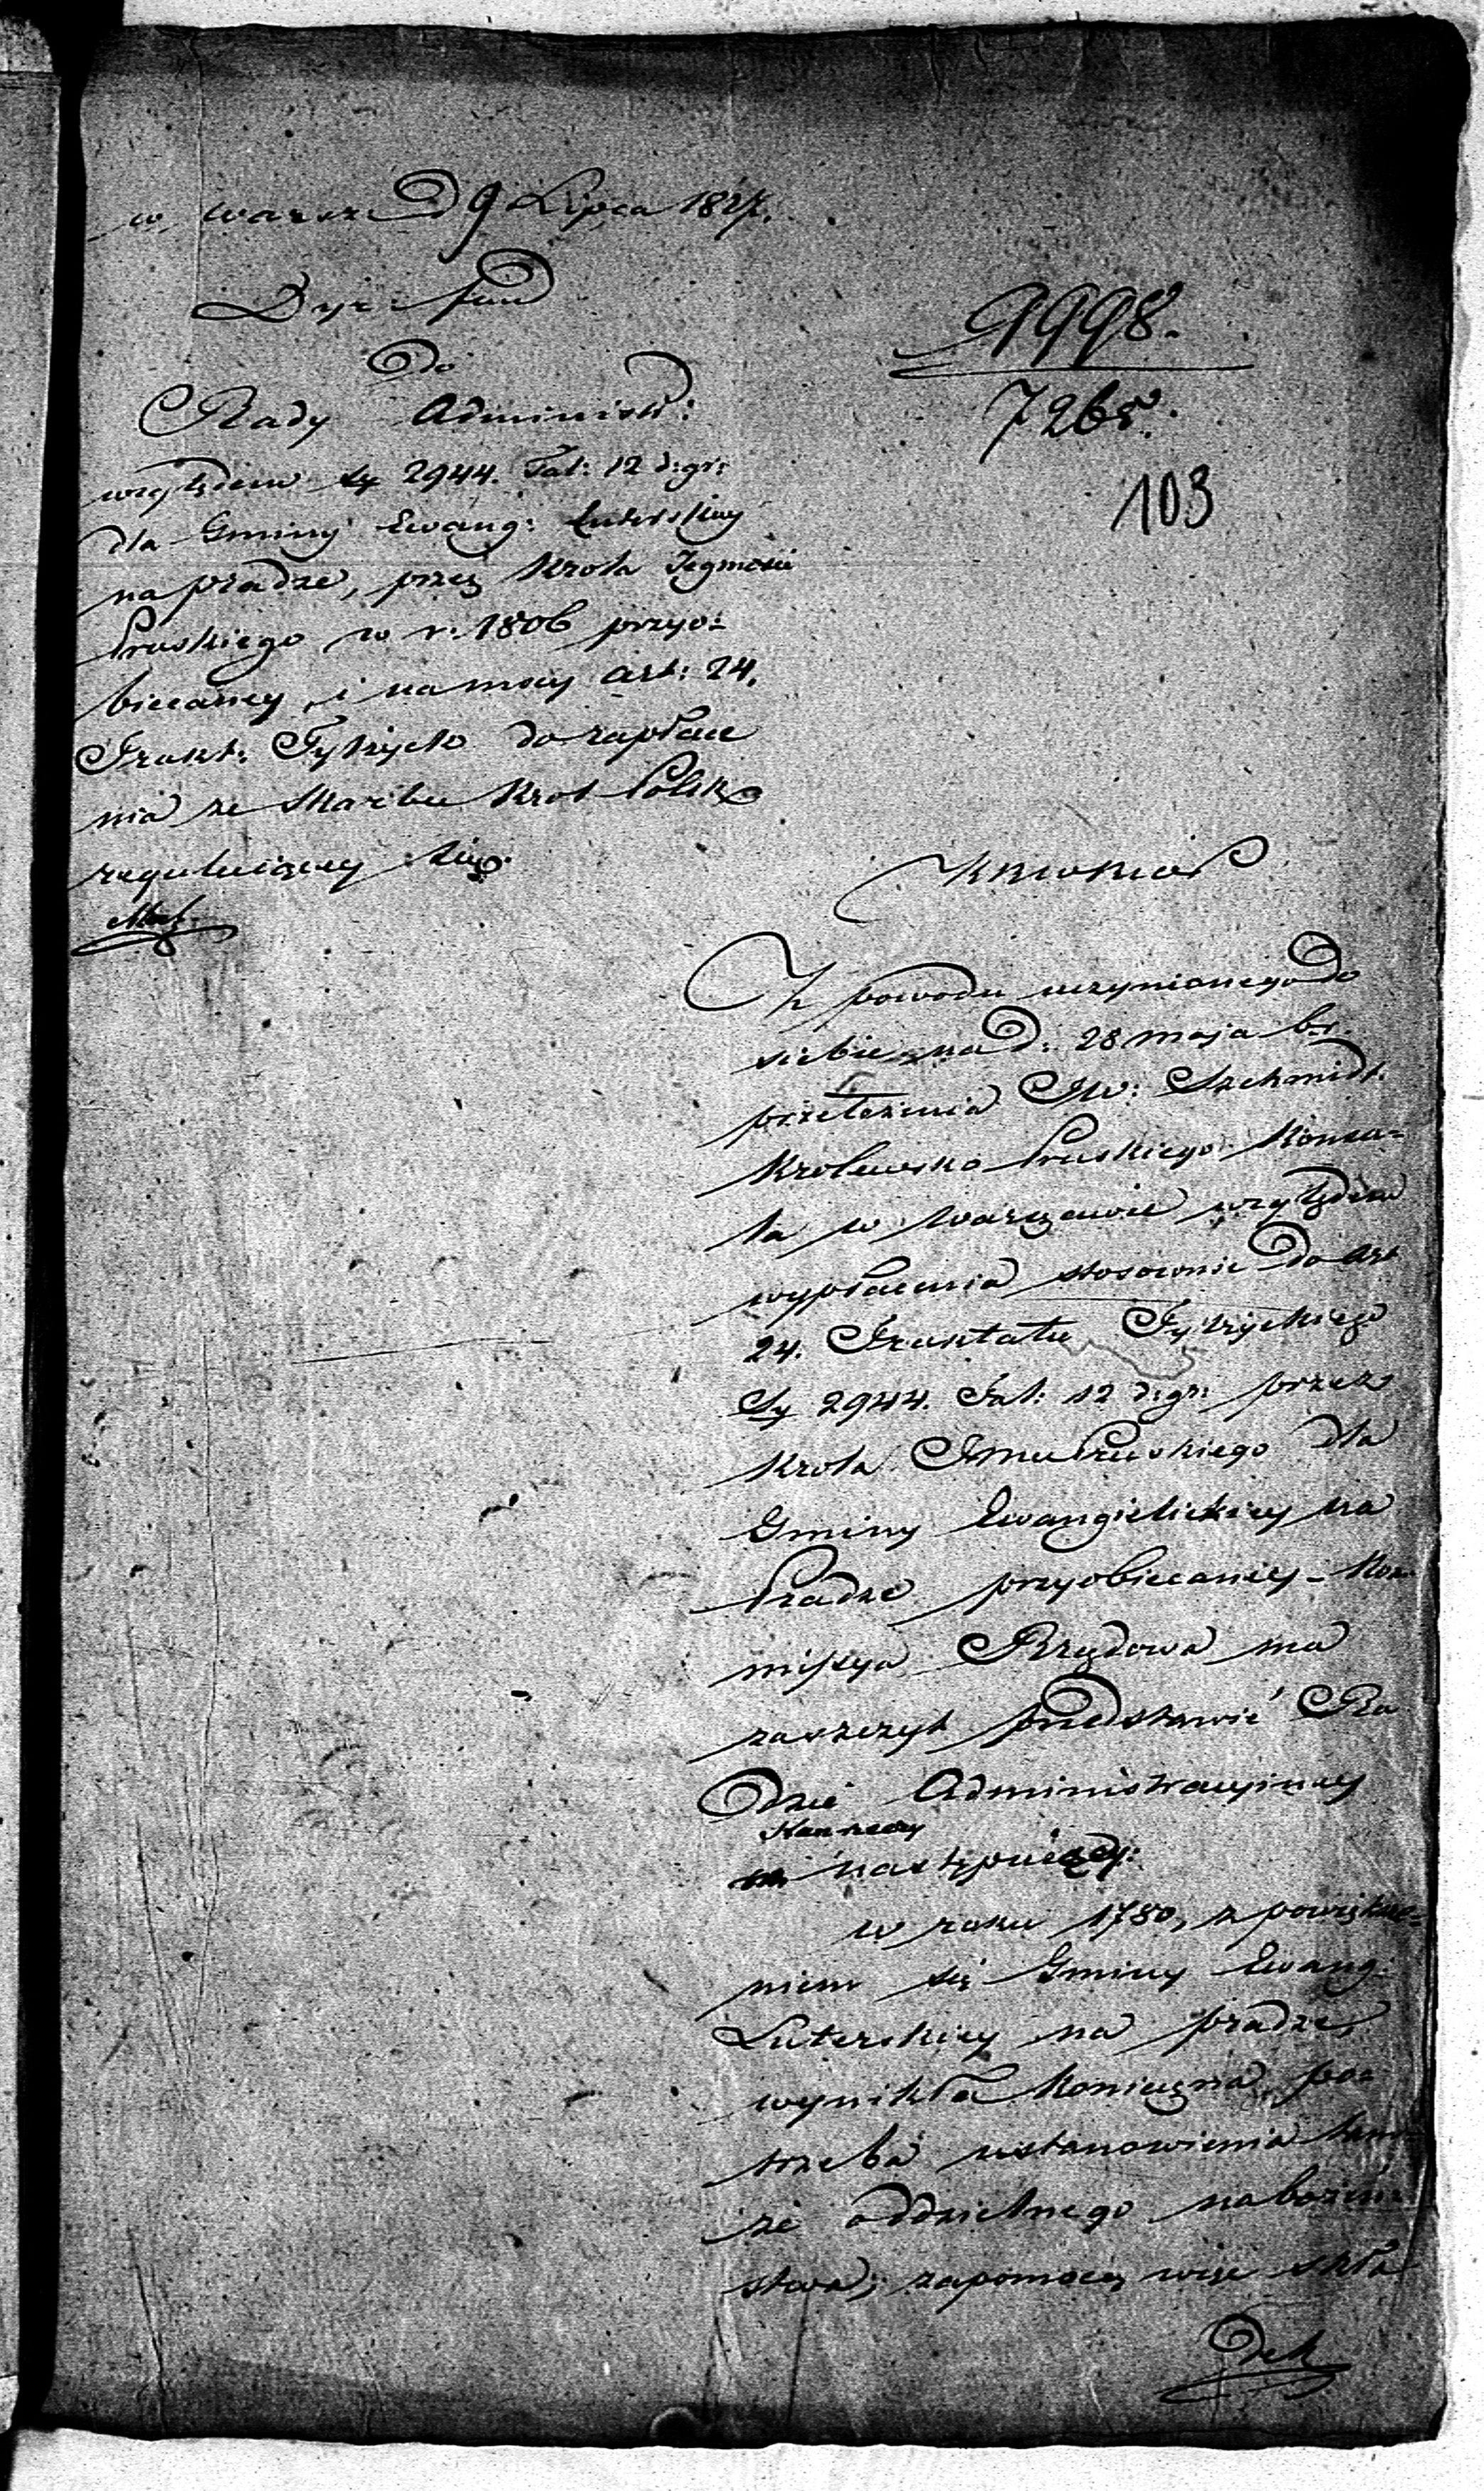 w warsz: d 9 Lipca
Dyr: fund
do
Rady Administr:
względem Sy 2944. Tal: 12 d:gr:
dla Gminy Ewang: Luterskiey
na pradze, przez Krola Jegmości
Pruskiego w r: 1806 przyo:
biecaney, i na mocy art: 24.
Trakt: Tylżyck do zapłace
nia ze Skarbu Krol Polsk
reguluiącey się.
9998.
103
Z powodu uczynionego do
siebie na d: 28 maja b.r.
przełożenia JW: Szchmidt.
Krolewsko Pruskiego Konsu=
la w Warszawie względem
wypłacenia stosownie do art
24. Traktatu Tylżyckiego
Sy 2944. Tal: 12 d:gr: przez
Krola Jmci Pruskiego dla
Gminy Ewangielickiey na
Pradze przyobiecaney - Kom
missya Rządowa ma
zaszczyt przedstawić Ra
dzie Administracyiney
następuie
w roku 1780, z powiększe=
niem się Gminy Ewang:
Luterskiey na pradze,
wynikła konieczna po=
trzeba ustanowienia tam
że oddzielnego nabożeń=
stwa; zapomocą więc skła
dek